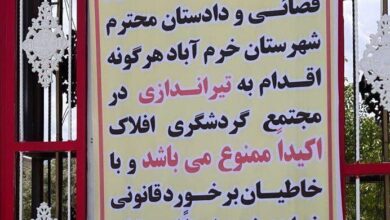 قضائی و دادستان محترم
شهرستان خرم آباد هرگونه
اقدام به تیراندازی در
مجتمع گردشگری افلاک
اکیداً ممنوع می باشد و با
خاطیان برخورد قانونی